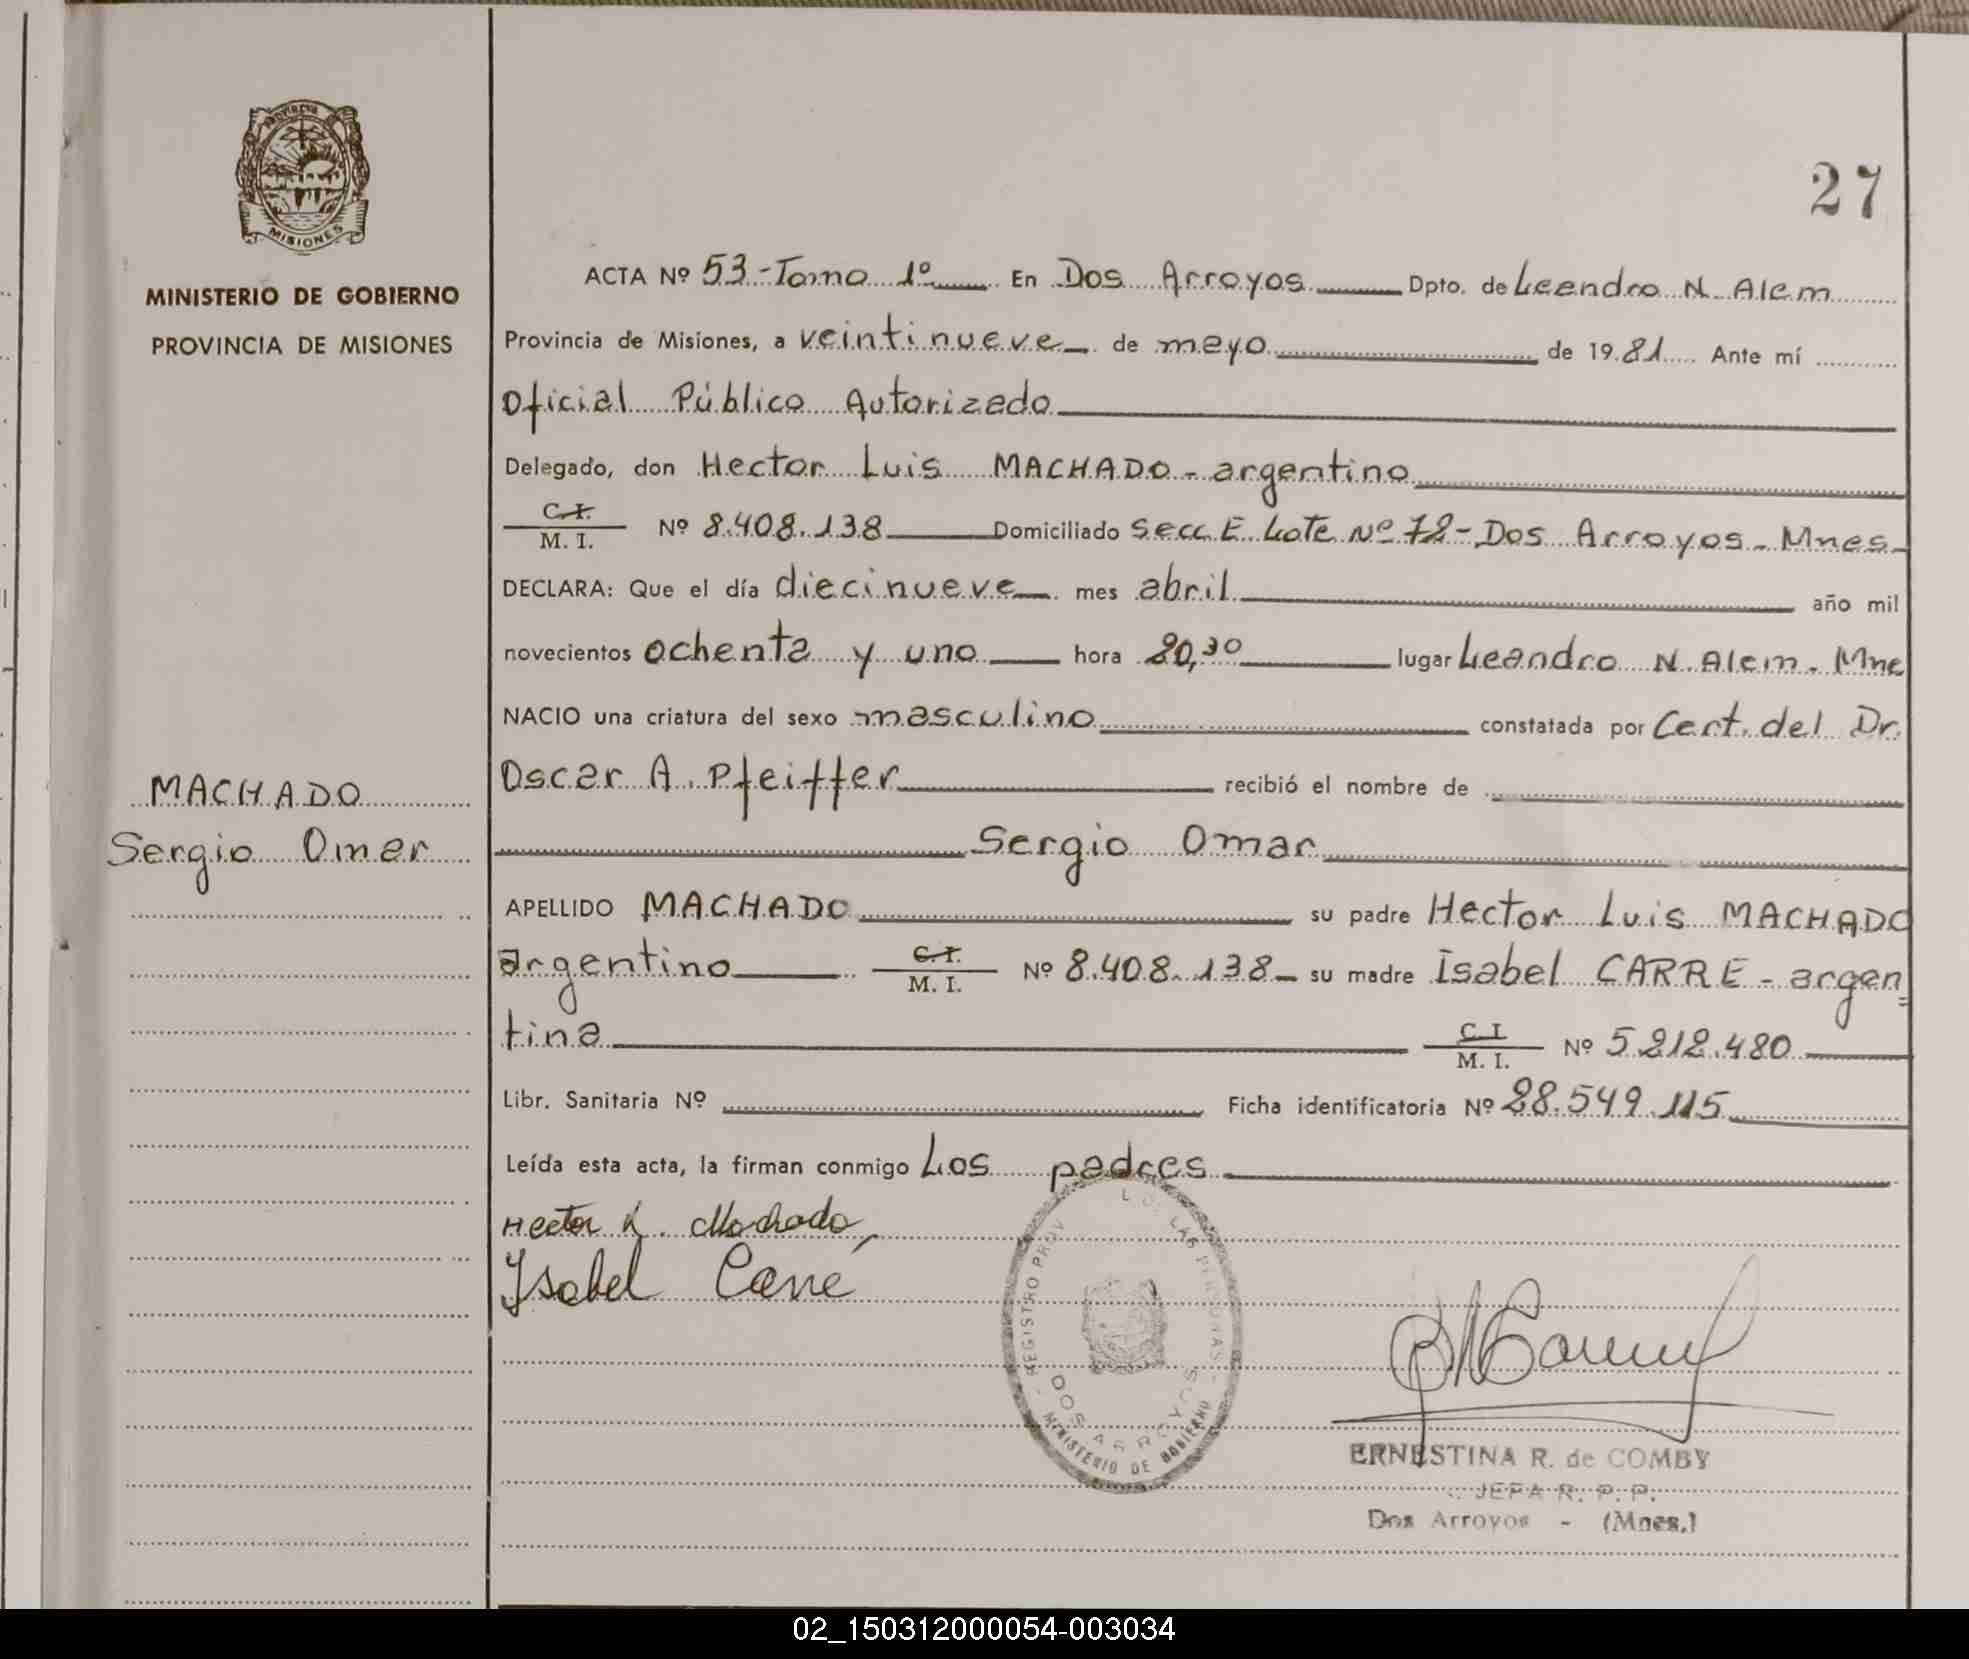 PROVINCIA
MISIONES
MINISTERIO DE GOBIERNO
PROVINCIA DE MISIONES
MACHADO
Sergio Omar
27
ACTA Nº 53-Tomo 1º En Dos Arroyos Dpto. de Leandro N. Alem
Provincia de Misiones, a veintinueve de mayo de 1981 Ante mí
Oficial Público Autorizado
Delegado, don Hector Luis MACHADO - argentino
C.I.
M. I. Nº 8.408.138 Domiciliado Secc. E Lote Nº 72 - Dos Arroyos - Mnes-
DECLARA: Que el día diecinueve mes abril año mil
novecientos ochenta y uno hora 20,30 lugar Leandro N. Alem - Mne
NACIO una criatura del sexo masculino constatada por Cert. del Dr.
Oscar A. Pfeiffer recibió el nombre de
Sergio Omar
APELLIDO MACHADO su padre Hector Luis MACHADO
argentino C.I. M. I. Nº 8.408.138 su madre Isabel CARRE - argen=
tina C.I. M. I. Nº 5.212.480
Libr. Sanitaria Nº Ficha identificatoria Nº 28.549.115
Leída esta acta, la firman conmigo Los padres
Hector L. Machado
Isabel Carré
REGISTRO PROV LAS PERSONAS
DOS ARROYOS
MINISTERIO DE GOBIERNO
ERNESTINA R. de COMBY
JEFA R. P. P.
Dos Arroyos - (Mnes.)
02_150312000054-003034